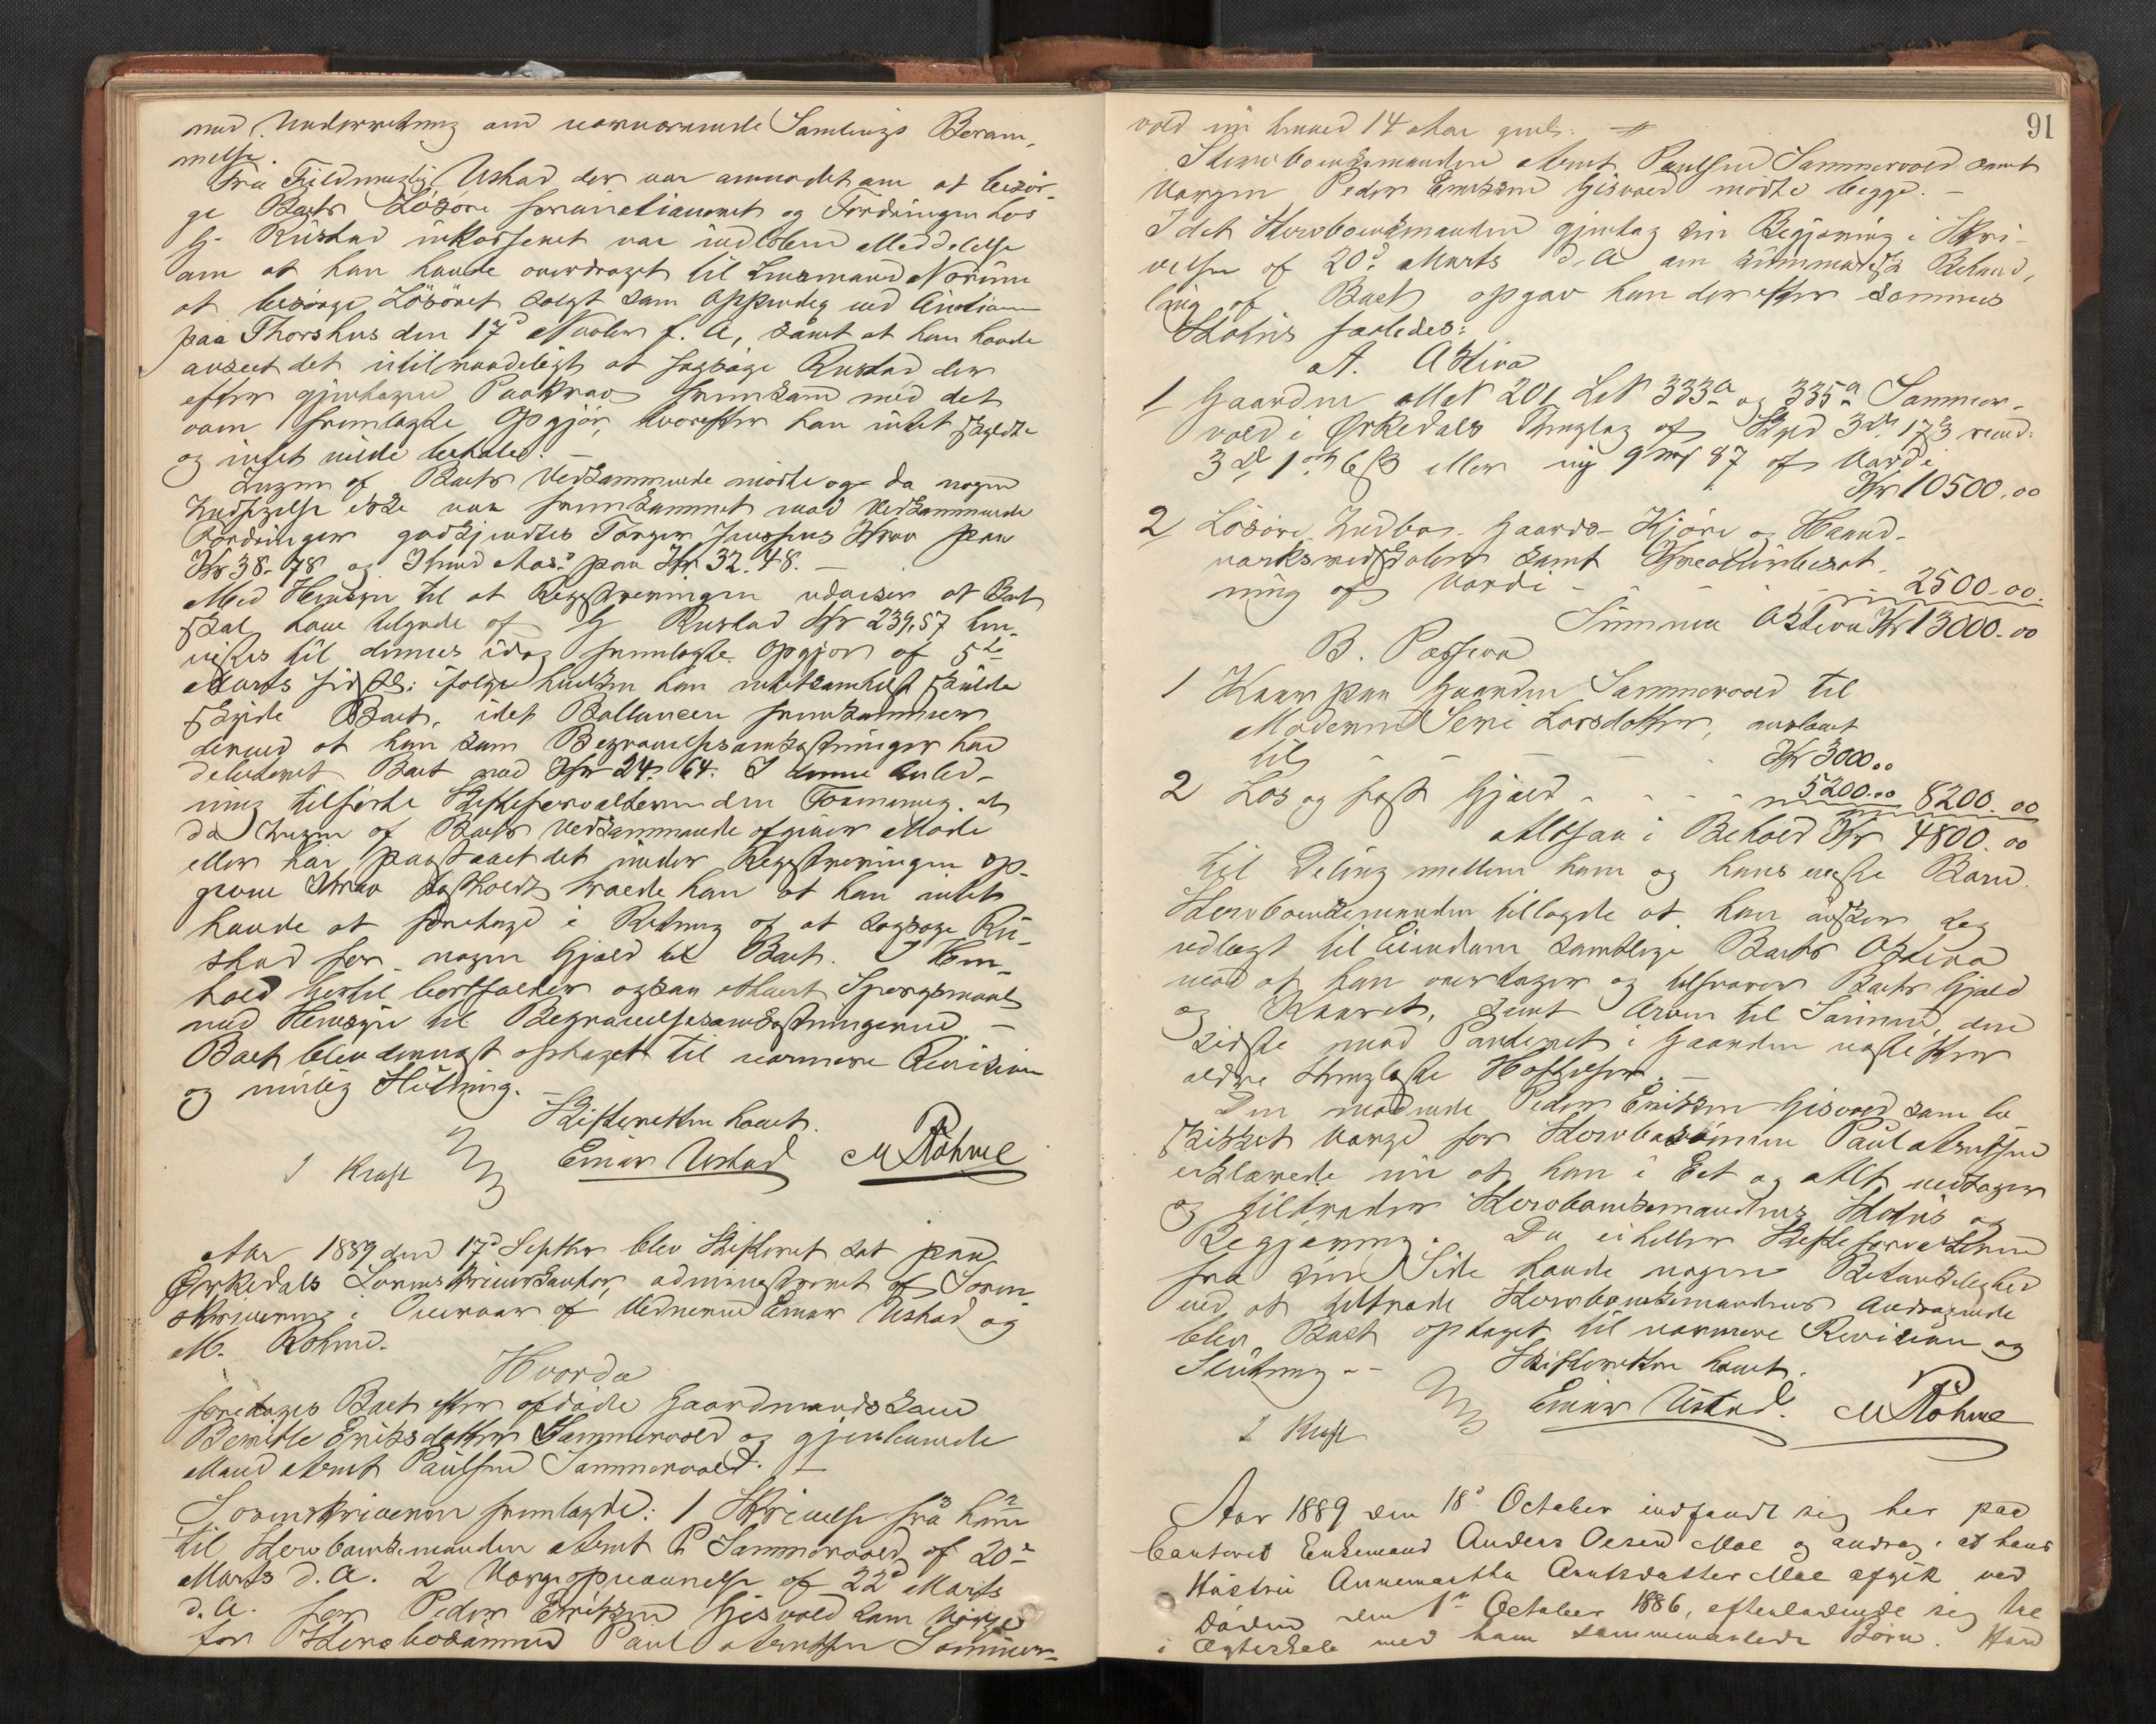 med Underretning om nærværende Samlings Beram-
melse.
Fra Fuldmægtig Ustad der var anmodet om at besør-
ge Boets Løsøre forauctioneret og Fordringen hos
G. Rustad inkasseret var indløben Meddelelse
om at han havde overdraget til Lensmand Norum
at besørge Løsøret solgt som Oppendix ved Auction
paa Thorshus den 17d Novbr f. A, samt at han havde
anseet det utilraadeligt at sagsøge Rustad der
efter gjentagne Paakrav fremkom med det
nom fremlagte Opgjør, hvorefter han intet skyldte
og intet vilde betale.
Ingen af Boets Vedkommende mødte og da nogen
Indsigelse ikke var fremkommet mod Vedkommende
Fordringer godkjendtes Torger Jenssens Krav paa
Kr 38.78 og Skind Aas' paa Kr. 32.48. –
Med Hensyn til at Registreringen udviser at Boet
skal have tilgode af G Rustad Kr 239,57 hen-
vistes til dennes idag fremlagte Opgjør af 5te
Marts sidstl: ifølge hvilken han intetsomhelst skulde
skylde Boet, idet Ballancen fremkommer
derved at han som Begravelsesomkostninger har
debiteret Boet med Kr 24. 64. I denne Anled-
ning tilførte Skifteforvalteren den Formening at
da Ingen af Boets Vedkommende afgiver Møde
eller har paastaaet det under Registreringen op-
givne Krav fastholdt troede han at han intet
havde at foretage i Retning af at sagsøge Ru-
stad for nogen Gjæld til Boet. I Hen-
hold hertil bortfalder ogsaa ethvert Spørgsmaal
med Hensyn til Begravelsesomkostningerne –
Boet blev dernæst optaget til nærmere Revision
og mulig Slutning.
Skifteretten hævet.
I Kraft Einar Ustad M Röhme
Aar 1889 den 17d Septbr blev Skifteret sat paa
Ørkedals Sorenskriverkontor, administreret af Soren-
skriveren i Overvær af Vidnerne Einar Ustad og
M. Röhme.
Hvorda
foretoges Boet efter afdøde Gaardmandskone
Beritte Eriksdatter Sammervold og gjenlevende
Mand Arnt Paulsen Sammervold. –
Sorenskriveren fremlagde: 1 Skrivelse fra ham
til Stervboenkemanden Arnt P. Sammervold af 20d
Marts d. A. 2 Værgeopnævnelse af 22d Marts
d. A. for Peder Eriksen Gisvold som Værge
for Stervbosønnen Paul Arntsen Sammer-
91
vold nu hunved 14 Aar gml:
Stervboenkemanden Arnt Paulsen Sammervold samt
Værgen Peder Eriksen Gisvold mødte begge. –
Idet Stervboenkemanden gjentog sin Begjæring i Skri-
velse af 20d Marts d. A om summarisk Behand-
ling af Boet opgav han derefter sammes
Status saaledes:
A. Aktiva
1 Gaarden MN 201 LN 333a og 335a Sammer-
vold i Ørkedals Thinglag af Skyld 3 172/3 revid:
3 D 1 ort 6 ß eller ny 9 mk 87 af Værdi
Kr 10500.00
2 Løsøre, Indbo- Gaards- Kjøre og Haand-
værksredskaber samt Kreaturbesæt-
ning af Værdi - - - 2500.00.
Summa Aktiva Kr 13000.00
B. Passiva
1 Kaar paa Gaarden Sammervold til
Moderen Seri Larsdatter, anslaaet
til - - - - Kr 3000.00
2 Løs og fast Gjæld - - - - 5200.00 8200.00
Altsaa i Behold Kr 4800.00
til Deling mellem ham og hans eneste Barn.
Stervboenkemanden tillagde at han ønsker sig
udlagt til Eiendom samtlige Boets Aktiva
mod at han overtager og tilsvarer Boets Gjæld
og Kaaret, samt Arven til Sønnen, den
sidste mod Panteret i Gaarden næst efter
ældre thinglæste Hæftelser. –
Den mødende Peder Eriksen Gisvold som be-
skikket Værge for Stervbosønnen Paul Arntsen
erklærede nu at han i Eet og Alt vedtager
og tiltræder Stervboenkemandens Status og
Begjæring. Da ei heller Skifteforvalteren
fra sin Side havde nogen Betænkelighed
ved at tiltræde Stervboenkemandens Andragende
blev Boet optaget til nærmere Revision og
Slutning. – Skifteretten hævet.
I Kraft Einar Ustad. M Röhme
Aar 1889 den 18d October indfandt sig her paa
Contoret Enkemand Anders Oesen Moe og androg: at hans
Hustru Annemartha Arntsdatter Moe afgik ved
Døden den 1ste October 1886, efterladende sig tre
i Ægteskab med ham sammenavlede Børn. Han